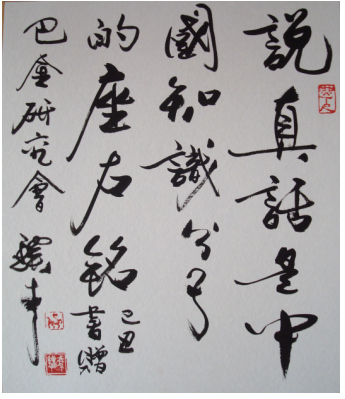 說真話是中
國知識分子
的座右銘
己丑
書贈
巴金研究會